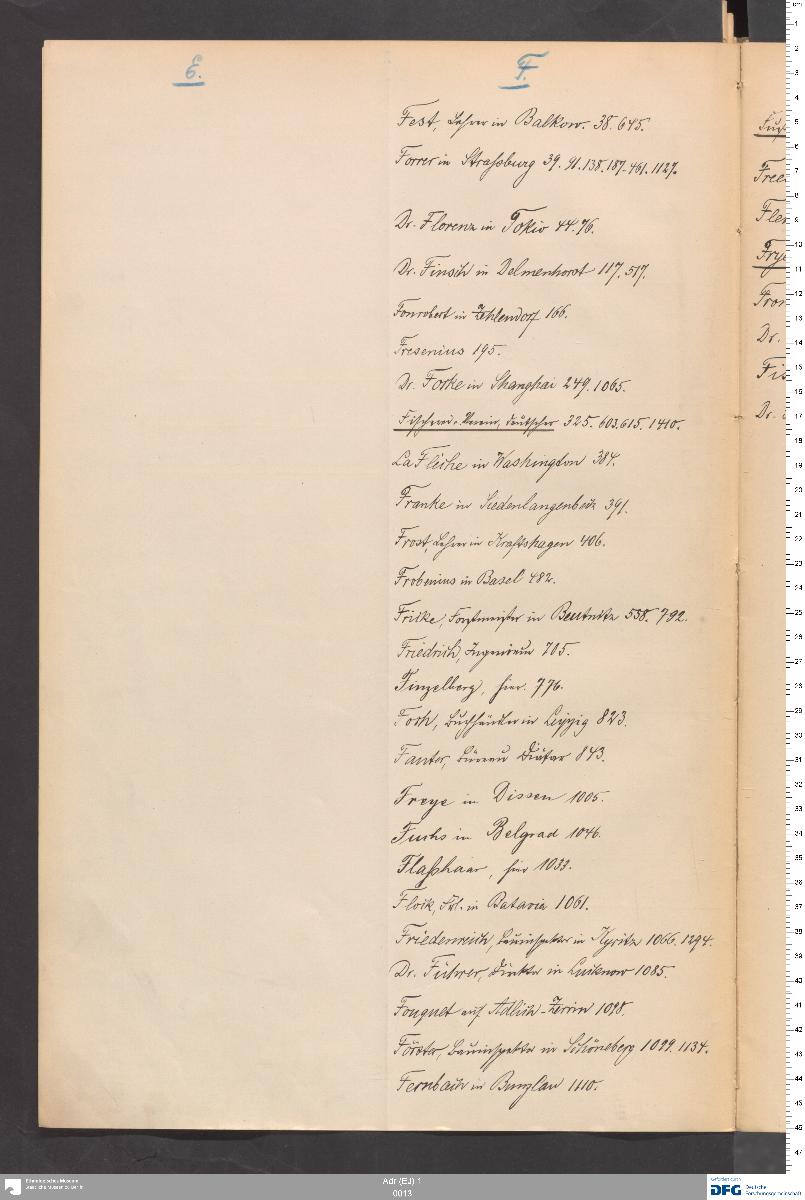 E.
F.
Fest, Lehrer in Balkow. 38. 645.
Forrer in Straßburg 39. 91. 138. 187. 461. 1127.
Dr. Florenz in Tokio 44. 76.
Dr. Finsch in Delmenhorst 117. 517.
Fonrobert in Zehlendorf 166.
Fresenius 195.
Dr. Forke in Shanghai 249. 1065.
Fischerei-Verein, deutscher 325. 603. 615. 1410.
La Flèche in Washington 384.
Franke in Siedenlangenbeck 391.
Frost, Lehrer in Kraftshagen 406.
Frobenius in Basel 482.
Fricke, Forstmeister in Beutnitz 558. 792.
Friedrich, Ingenieur 705.
Finzelberg, hier. 776.
Foth, Buchhändler in Leipzig 823.
Fanter, Büreau Diätar 843.
Freye in Dissen 1005.
Fuchs in Belgrad 1046.
Flaßhaar, hier 1033.
in Batavia 1061.
Friedenreich, Bauinspektor in Kyritz 1066. 1294.
Dr. Führer, Direktor in Lucknow 1085.
Fouquet auf Adlich-Zerrin 1098.
Förster, Bauinspektor in Schöneberg 1099. 1134.
Fernbach in Bunzlau 1110.
Dr.
Dr.
Ethnologisches Museum
Staatliche Museen zu Berlin
Adr (EJ) 1
0013
Gefördert durch
DFG Deutsche
Forschungsgemeinschaft